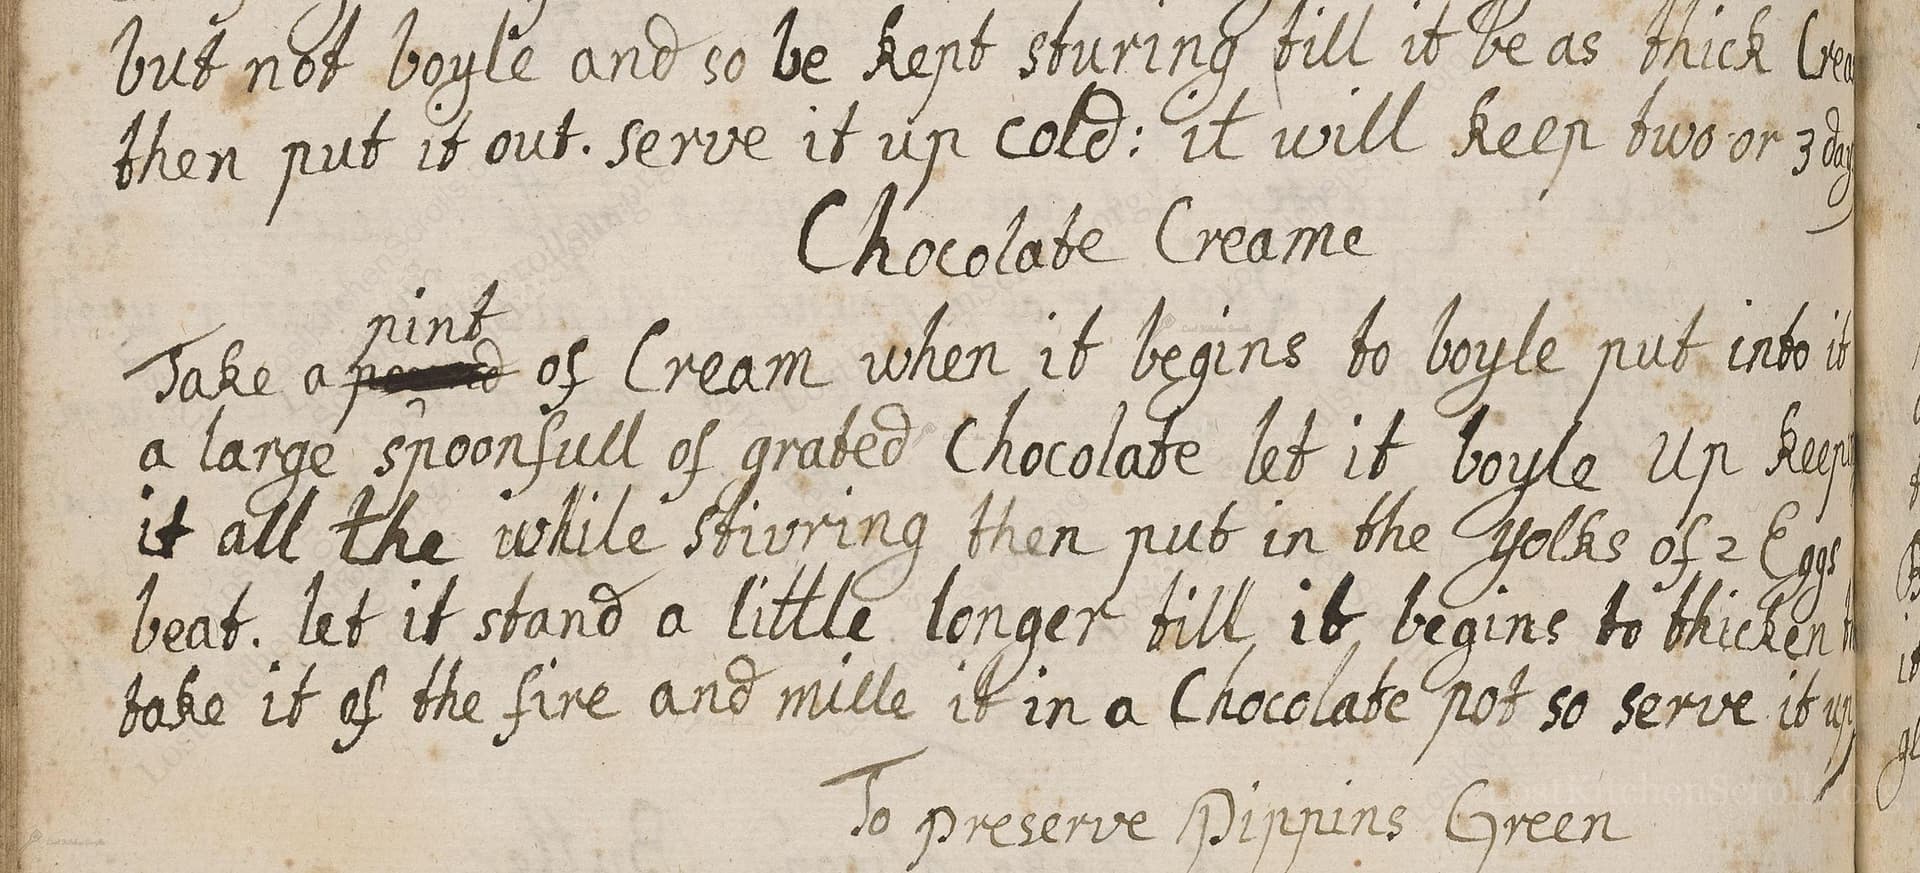 but not boyle and so be kept sturing till it be as thick Crea
then put it out. serve it up cold: it will keep two or 3 day
Chocolate Creame
pint
Take a pound of Cream when it begins to boyle put into it
a large spoonfull of grated Chocolate let it boyle Up keep
it all the while stivring then put in the yolks of 2 Eggs
beat. let it stand a little longer till it begins to thicken
take it of the fire and mille it in a Chocolate pot so serve it up
To preserve Pippins Green